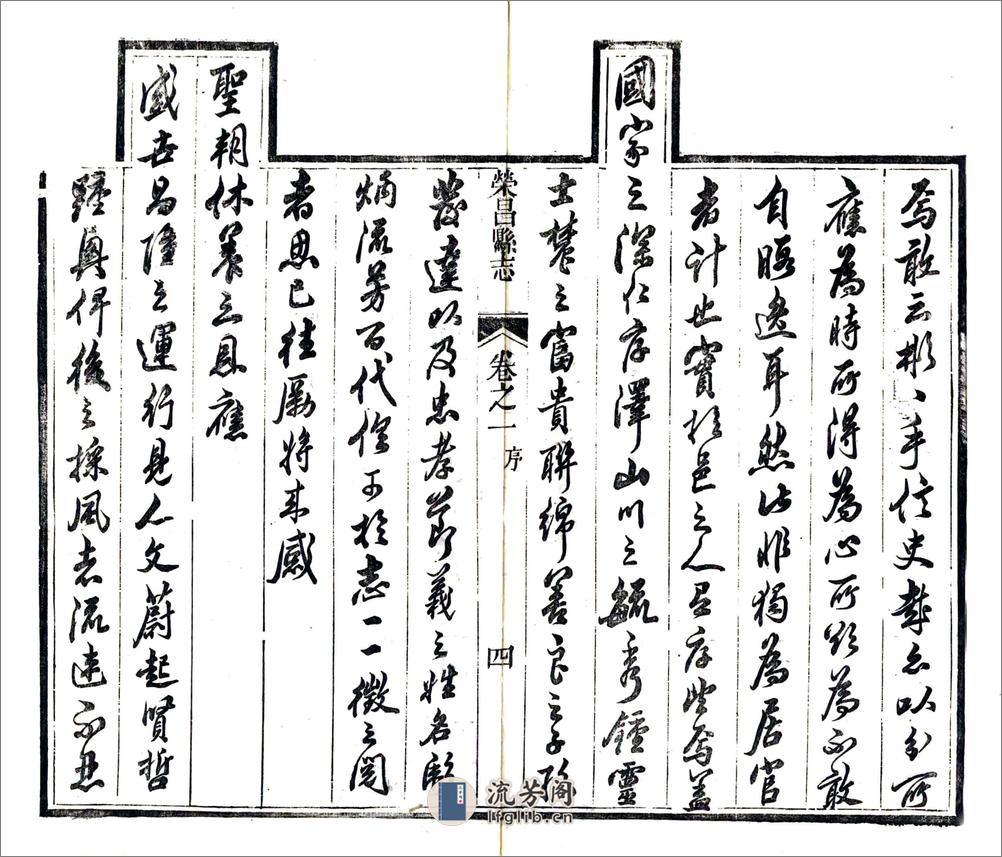 焉敢云彬彬乎信史哉亦以分所
應為時所得為心所欲為不敢
自暇逸耳然此非獨為居官
者計也實於邑之人有厚望焉蓋
國家之深仁厚澤山川之毓秀鍾靈
士農之富貴聯綿善良之子孫
發達以及忠孝節義之姓名馨
烟流芳百代俱可於志一一徵之閱
者思已往勵將來感
聖朝休養之恩應
盛世昌隆之運行見人文蔚起賢哲
踵興俾後之採風志流連不忍
榮昌縣志
卷之一
序
四
流芳阁
lfglib.cn